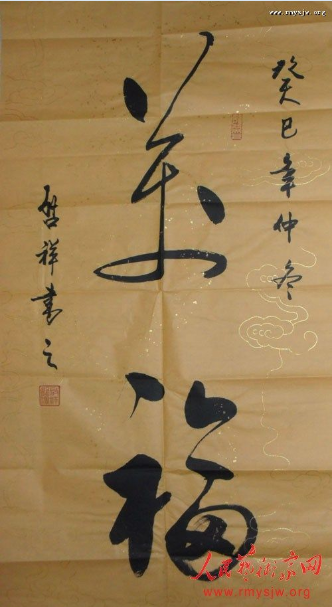 www.rmysjw.org
癸巳年仲冬
萬福
啟祥書之
人民藝術家网
www.rmysjw.org